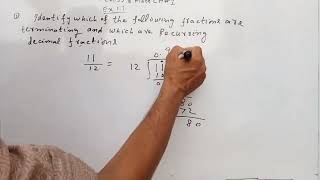 Ex 1.1
① Identify which of the following fractions are
terminating and which are recurring
decimal fractions
11
12
12 11
0.
80
72
80